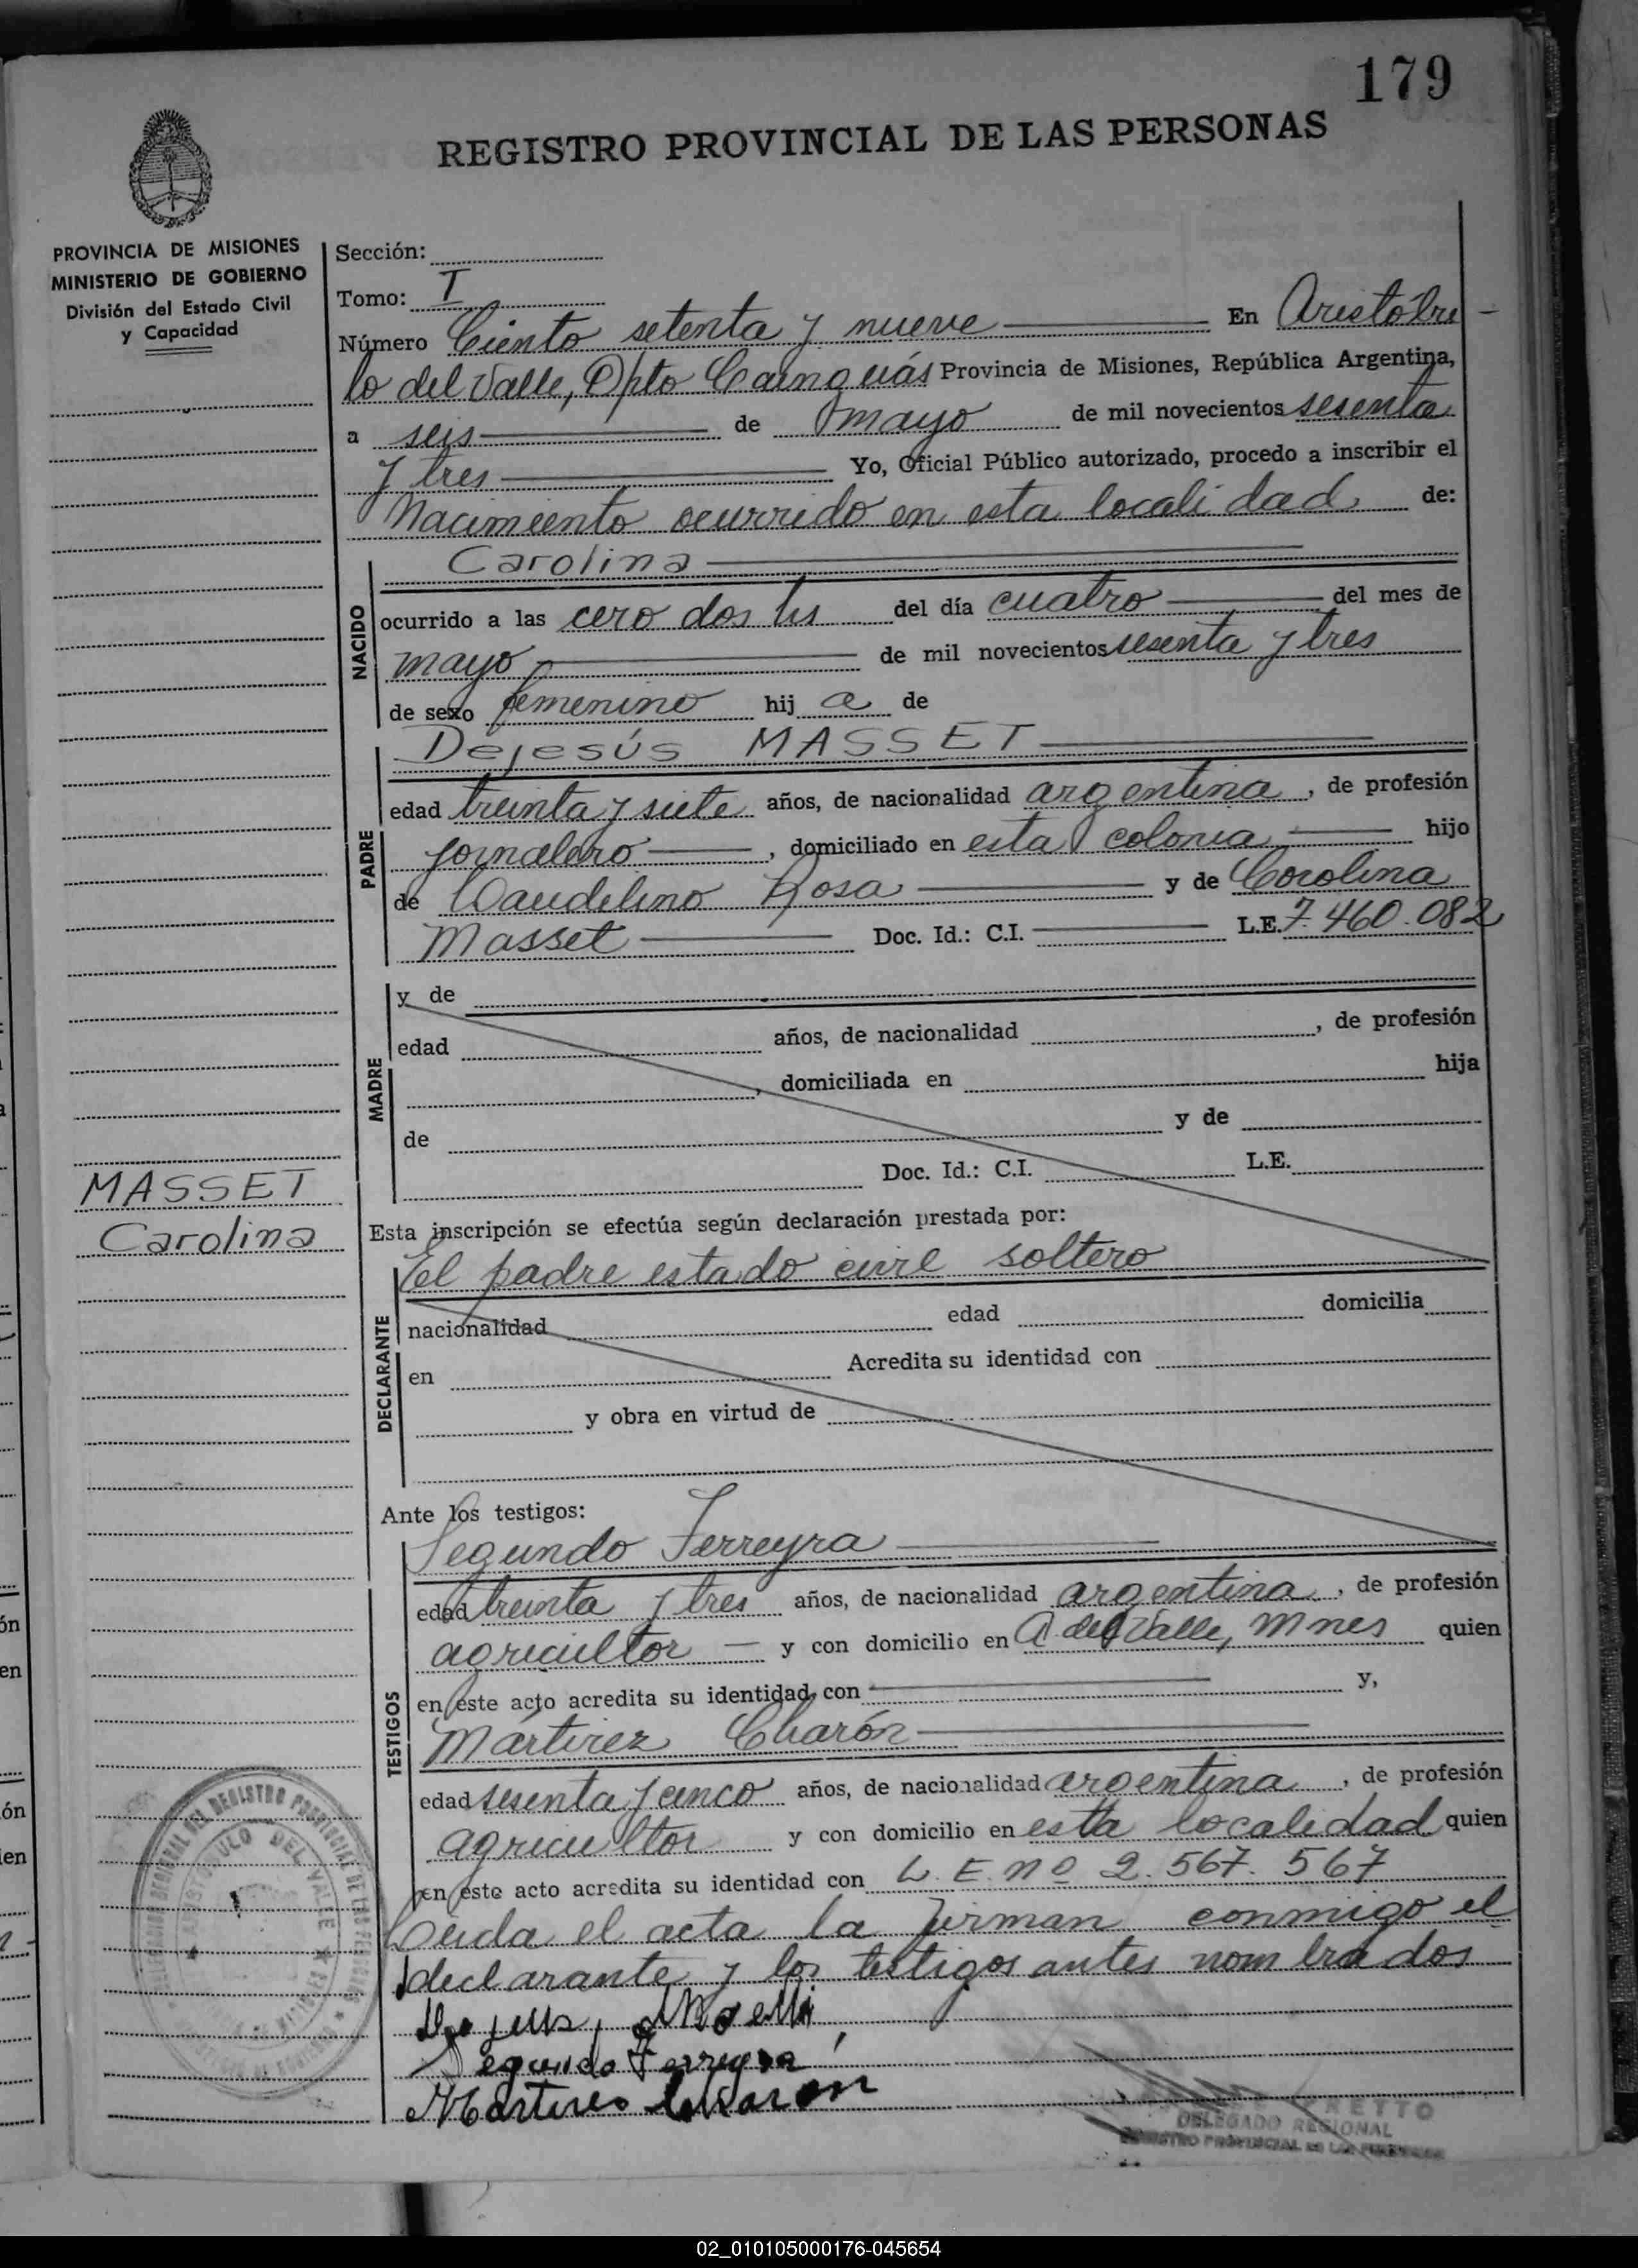 179
REGISTRO PROVINCIAL DE LAS PERSONAS
PROVINCIA DE MISIONES
MINISTERIO DE GOBIERNO
División del Estado Civil
y Capacidad
Sección:
Tomo: I
Número Ciento setenta y nueve En Aristóbu
lo del Valle, Dpto Cainguás Provincia de Misiones, República Argentina,
a seis de mayo de mil novecientos sesenta
y tres Yo, Oficial Público autorizado, procedo a inscribir el
Nacimiento ocurrido en esta localidad de:
NACIDO
Carolina
ocurrido a las cero dos hs del día cuatro del mes de
mayo de mil novecientos sesenta y tres
de sexo femenino hij a de
PADRE
Dejesús MASSET
edad treinta y siete años, de nacionalidad argentina, de profesión
jornalero, domiciliado en esta colonia hijo
de Caudelino Rosa y de Corolina
Masset Doc. Id.: C.I. L.E. 7.460.082
MADRE
y de
edad años, de nacionalidad , de profesión
, domiciliada en hija
de y de
Doc. Id.: C.I. L.E.
MASSET
Carolina
Esta inscripción se efectúa según declaración prestada por:
DECLARANTE
El padre estado civil soltero
nacionalidad edad domicilia
en Acredita su identidad con
y obra en virtud de
Ante los testigos:
TESTIGOS
Segundo Ferreyra
edad treinta y tres años, de nacionalidad argentina, de profesión
agricultor y con domicilio en A. del Valle, Mnes quien
en este acto acredita su identidad con y,
Mártirez Charón
edad sesenta y cinco años, de nacionalidad argentina, de profesión
agricultor y con domicilio en esta localidad quien
en este acto acredita su identidad con L.E. nº 2.567.567
Leida el acta la firman conmigo el
declarante y los testigos antes nombrados
Segundo Ferreyra
Martires Charon
DELEGADO REGIONAL
REGISTRO PROVINCIAL DE LAS PERSONAS
ARISTOBULO DEL VALLE
02_010105000176-045654